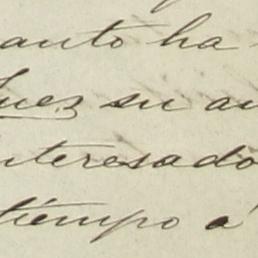 anto ha
Juez su au
nteresado
tiempo á